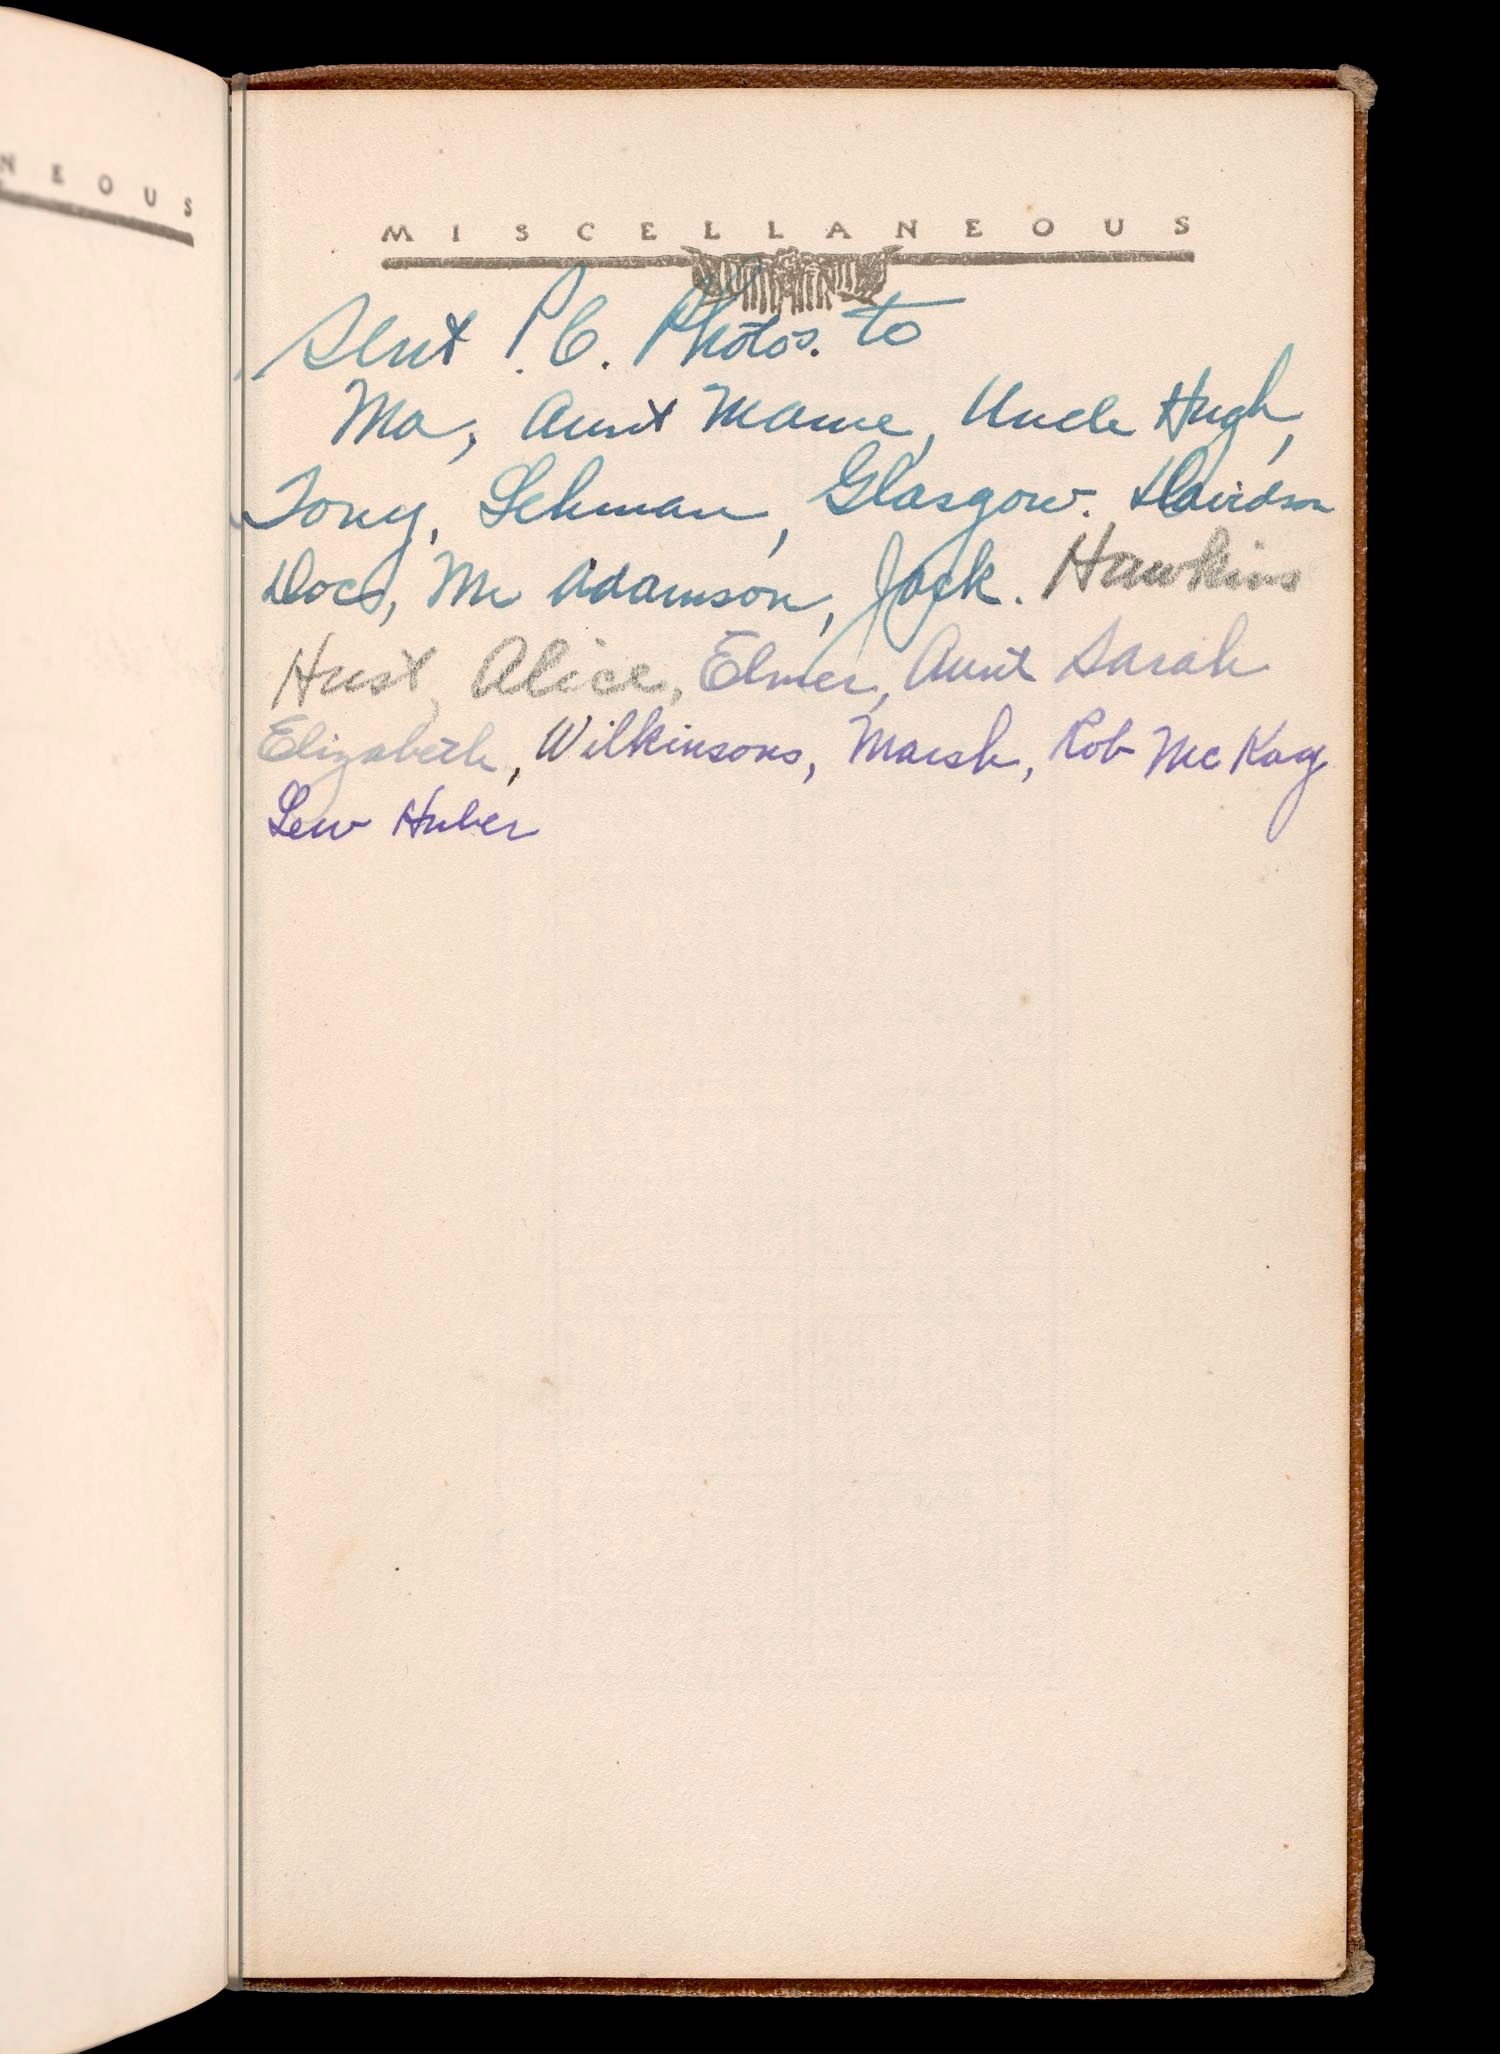 NEOUS
MISCELLANEOUS
Sent P.C. Photos. to
Ma, Aunt Mame, Uncle Hugh,
Tony, Lehman, Glasgow. Davidson
Docs, Mr Adamson, Jack. Hawkins
Hust, Alice, Elmer, Aunt Sarah
Elizabeth, Wilkinsons, Marsh, Rob McKay
Lew Huber